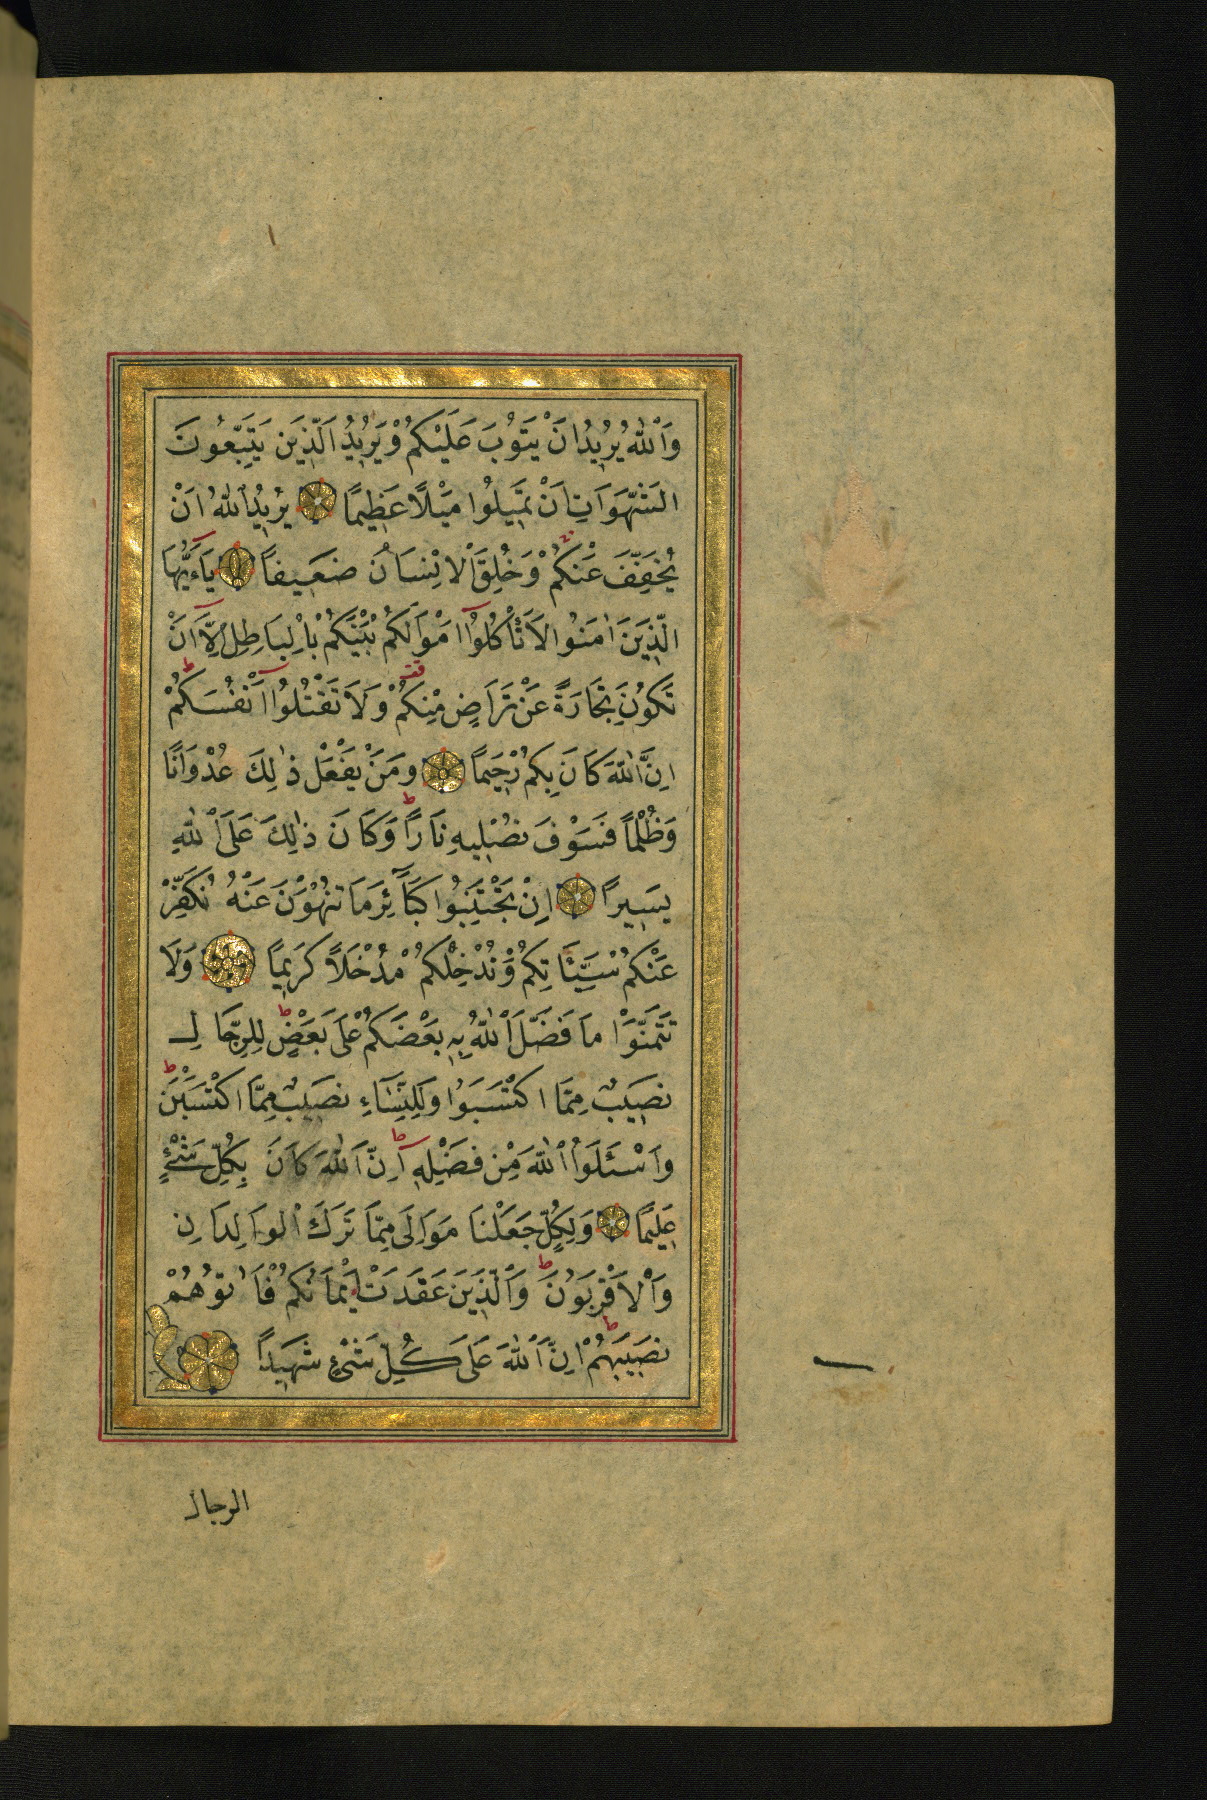 وَاللّٰهُ يُرِيدُ اَنْ يَتُوبَ عَلَيْكُمْ وَيُرِيدُ الَّذِينَ يَتَّبِعُونَ
الشَّهَوَاتِ اَنْ تَمِيلُوا مَيْلًا عَظِيمًا يُرِيدُ اللّٰهُ اَنْ
يُخَفِّفَ عَنْكُمْ وَخُلِقَ الْاِنْسَانُ ضَعِيفًا يَآءَيُّهَا
الَّذِينَ اٰمَنُوا لَا تَأْكُلُوٓا اَمْوَالَكُمْ بَيْنَكُمْ بِالْبَاطِلِ اِلَّٓا اَنْ
تَكُونَ تِجَارَةً عَنْ تَرَاضٍ مِنْكُمْ وَلَا تَقْتُلُوٓا اَنْفُسَكُمْ
اِنَّ اللّٰهَ كَانَ بِكُمْ رَحِيمًا وَمَنْ يَفْعَلْ ذٰلِكَ عُدْوَانًا
وَظُلْمًا فَسَوْفَ نُصْلِيهِ نَارًا وَكَانَ ذٰلِكَ عَلَى اللّٰهِ
يَسِيرًا اِنْ تَجْتَنِبُوا كَبَآئِرَ مَا تُنْهَوْنَ عَنْهُ نُكَفِّرْ
عَنْكُمْ سَيِّئَاتِكُمْ وَنُدْخِلْكُمْ مُدْخَلًا كَرِيمًا وَلَا
تَتَمَنَّوْا مَا فَضَّلَ اللّٰهُ بِهِ بَعْضَكُمْ عَلَى بَعْضٍ لِلرِّجَالِ
نَصِيبٌ مِمَّا اكْتَسَبُوا وَلِلنِّسَآءِ نَصِيبٌ مِمَّا اكْتَسَبْنَ
وَاسْـَٔلُوا اللّٰهَ مِنْ فَضْلِهِ اِنَّ اللّٰهَ كَانَ بِكُلِّ شَيْءٍ
عَلِيمًا وَلِكُلٍّ جَعَلْنَا مَوَالِيَ مِمَّا تَرَكَ الْوَالِدَانِ
وَالْاَقْرَبُونَ وَالَّذِينَ عَقَدَتْ اَيْمَانُكُمْ فَاٰتُوهُمْ
نَصِيبَهُمْ اِنَّ اللّٰهَ عَلَى كُلِّ شَيْءٍ شَهِيدًا
الرجال